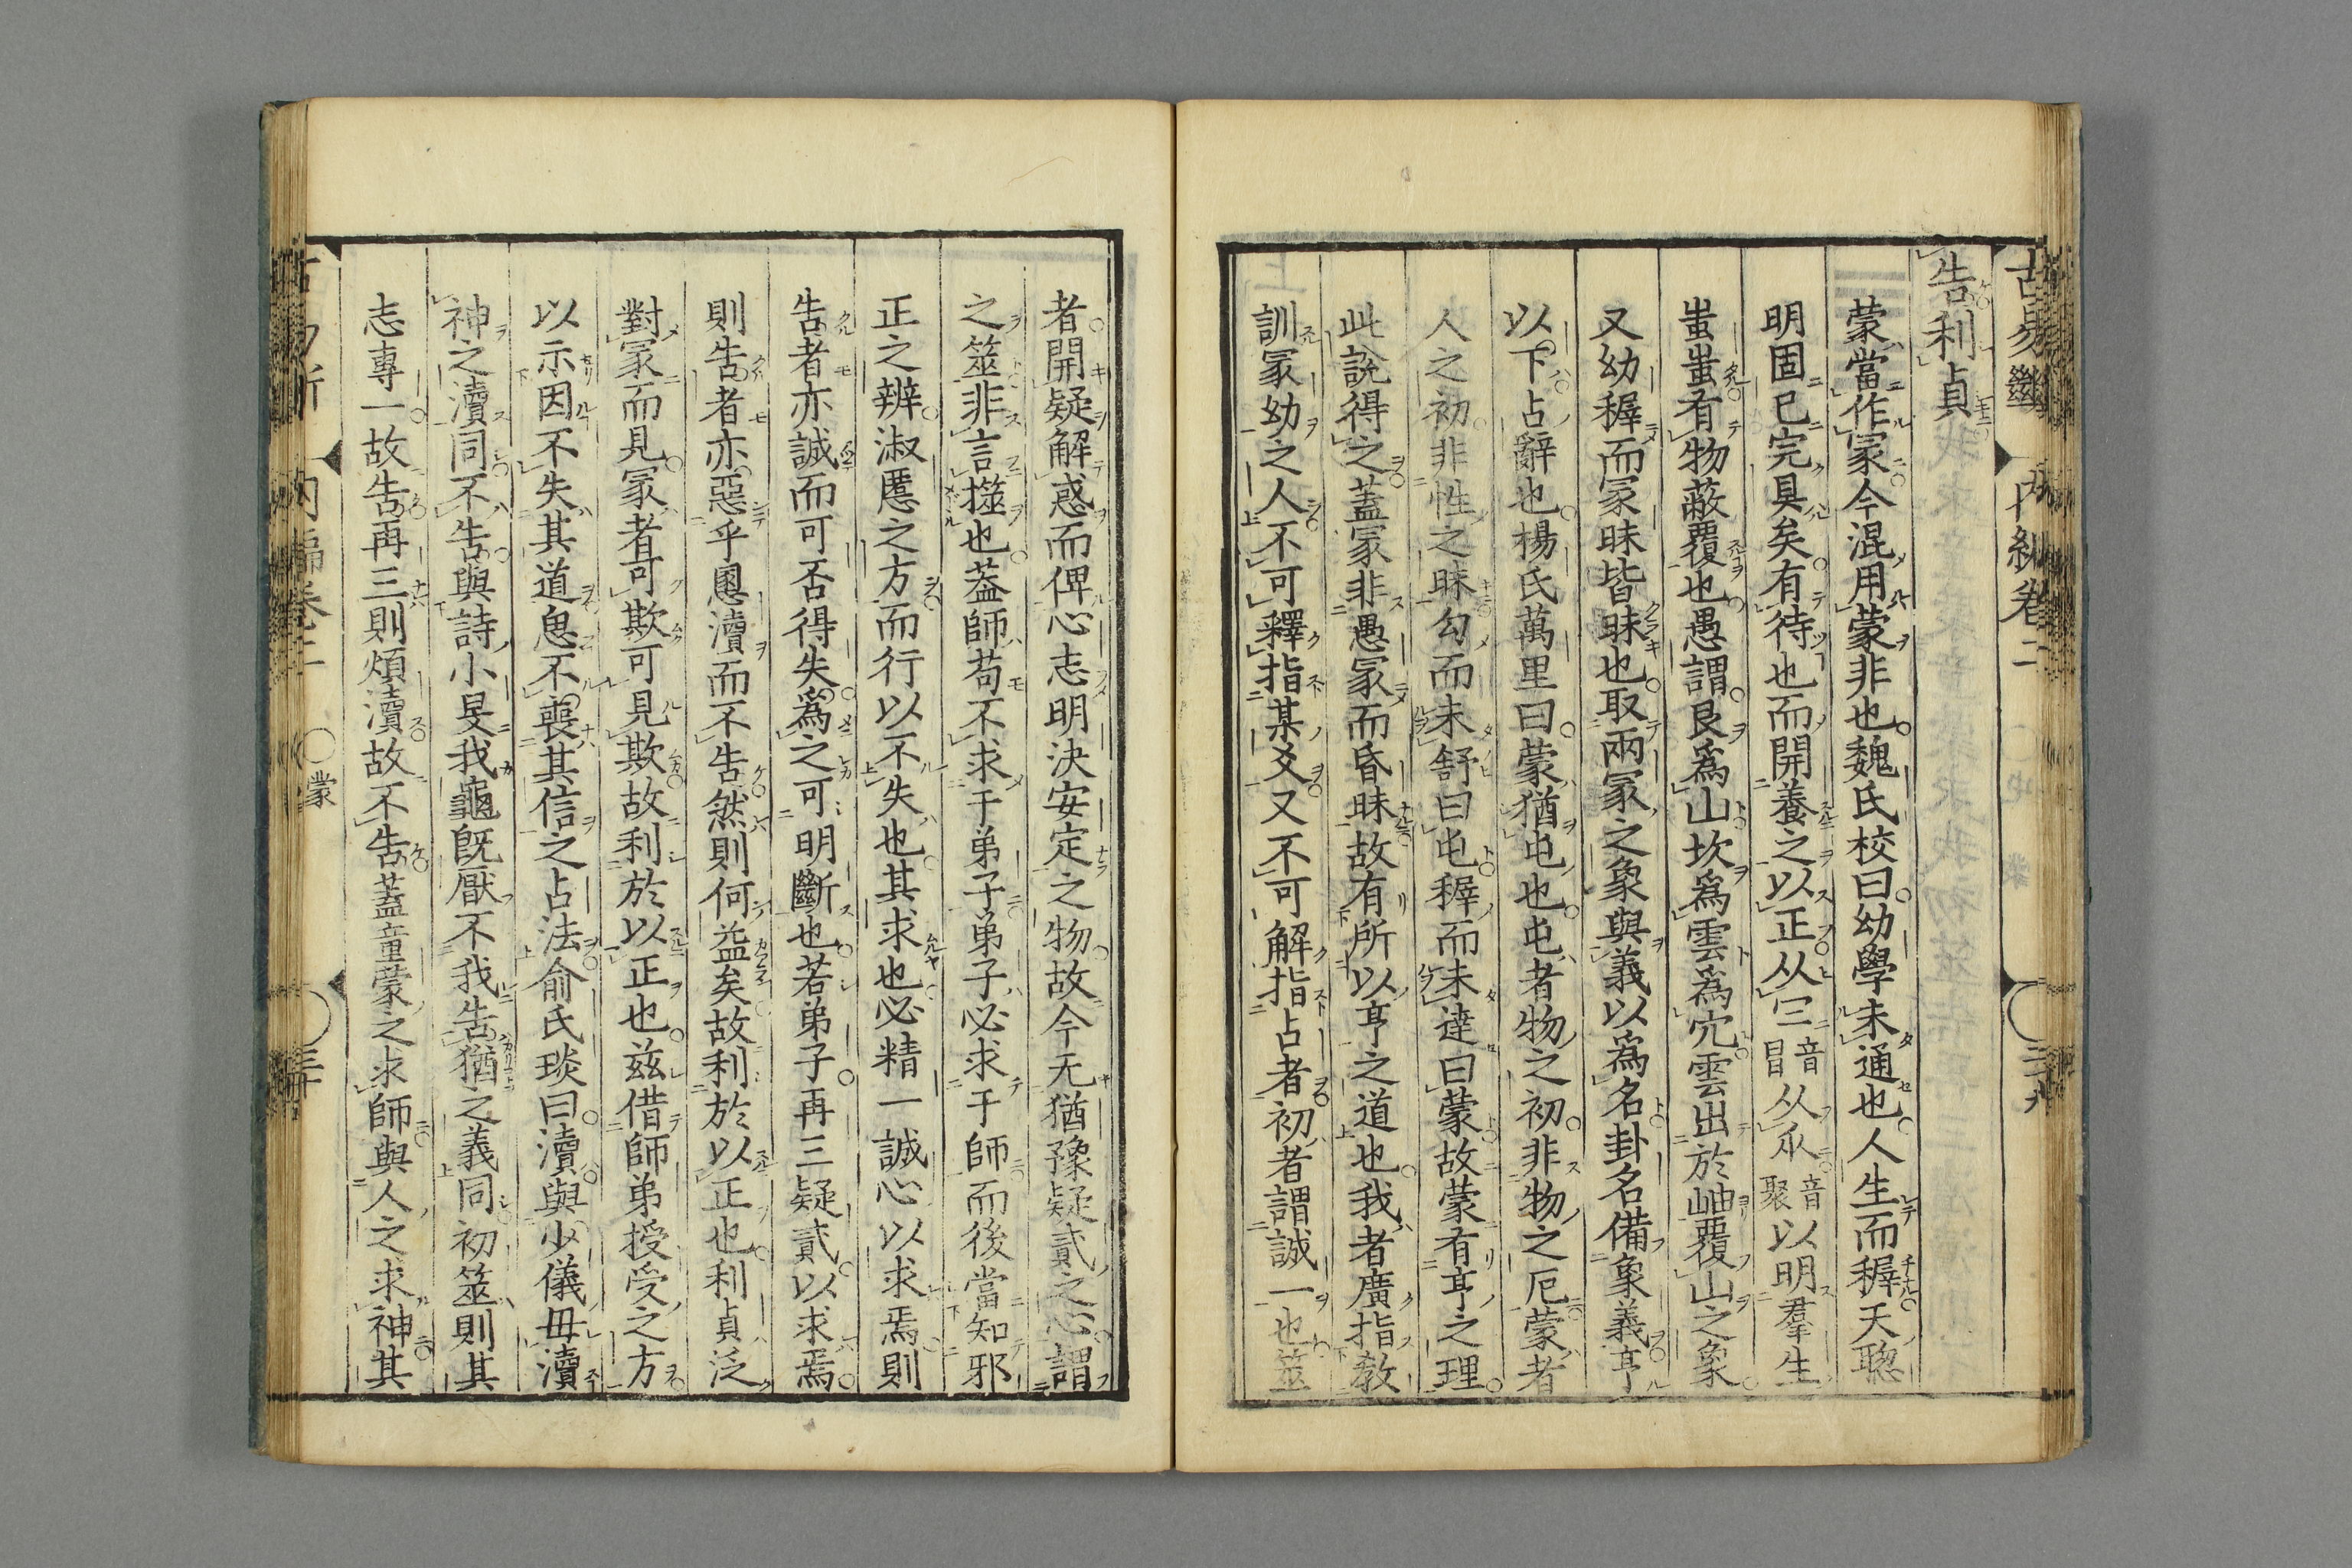 古易斷 内編卷二
告利貞
蒙當作冡今混用蒙非也魏氏校曰幼學未通也人生而穉天聰
明固已完具矣有待也而開養之以正从亖音冒从乑音聚以明羣生
蚩蚩有物蔽覆也愚謂艮爲山坎爲雲爲穴雲出於岫覆山之象
又幼穉而冡昧皆昧也取兩冡之象與義以爲名卦名備象義亨
以下占辭也楊氏萬里曰蒙猶屯也屯者物之初非物之厄蒙者
人之初非性之昧勾而未舒曰屯穉而未達曰蒙故蒙有亨之理
此說得之蓋冡非愚冡而昏昧故有所以亨之道也我者廣指教
訓冡幼之人不可釋指某爻又不可解指占者初者謂誠一也筮
者開疑解惑而俾心志明決安定之物故今无猶豫疑貳之心謂
之筮非言揲也蓋師苟不求于弟子弟子必求于師而後當知邪
正之辨淑慝之方而行以不失也其求也必精一誠心以求焉則
告者亦誠而可否得失爲之可明斷也若弟子再三疑貳以求焉
則告者亦惡乎慁瀆而不告然則何益矣故利於以正也利貞泛
對冡而見冡者可欺可見欺故利於以正也茲借師弟授受之方
以示因不失其道思不喪其信之占法俞氏琰曰瀆與少儀毋瀆
神之瀆同不告與詩小旻我龜既厭不我告猶之義同初筮則其
志專一故告再三則煩瀆故不告蓋童蒙之求師與人之求神其
内編卷二 ○蒙 三十